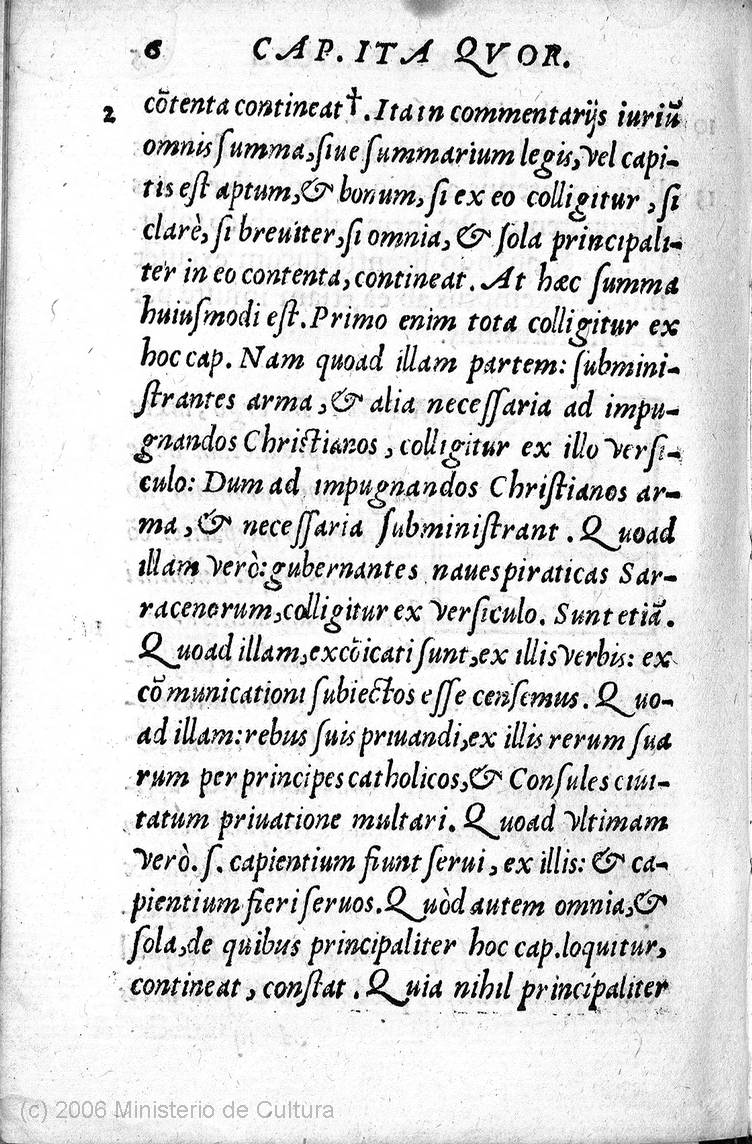 6 CAP. ITA QVOR.
2 cõtenta contineat†. Ita in commentarijs iuriũ
omnis ſumma, ſiue ſummarium legis, vel capi-
tis eſt aptum, & bonum, ſi ex eo colligitur, ſi
clarè, ſi breuiter, ſi omnia, & ſola principali-
ter in eo contenta, contineat. At hæc ſumma
huiuſmodi eſt. Primo enim tota colligitur ex
hoc cap. Nam quoad illam partem: ſubmini-
ſtrantes arma, & alia neceſſaria ad impu-
gnandos Chriſtianos, colligitur ex illo verſi-
culo: Dum ad impugnandos Chriſtianos ar-
ma, & neceſſaria ſubminiſtrant. Quoad
illam verò: gubernantes naues piraticas Sar-
racenorum, colligitur ex verſiculo. Sunt etiã.
Quoad illam, excõicati ſunt, ex illis verbis: ex
cõmunicationi ſubiectos eſſe cenſemus. Quo-
ad illam: rebus ſuis priuandi, ex illis rerum ſua
rum per principes catholicos, & Conſules ciui-
tatum priuatione multari. Quoad vltimam
verò. ſ. capientium fiunt ſerui, ex illis: & ca-
pientium fieri ſeruos. Quòd autem omnia, &
ſola, de quibus principaliter hoc cap. loquitur,
contineat, conſtat. Quia nihil principaliter
(c) 2006 Ministerio de Cultura